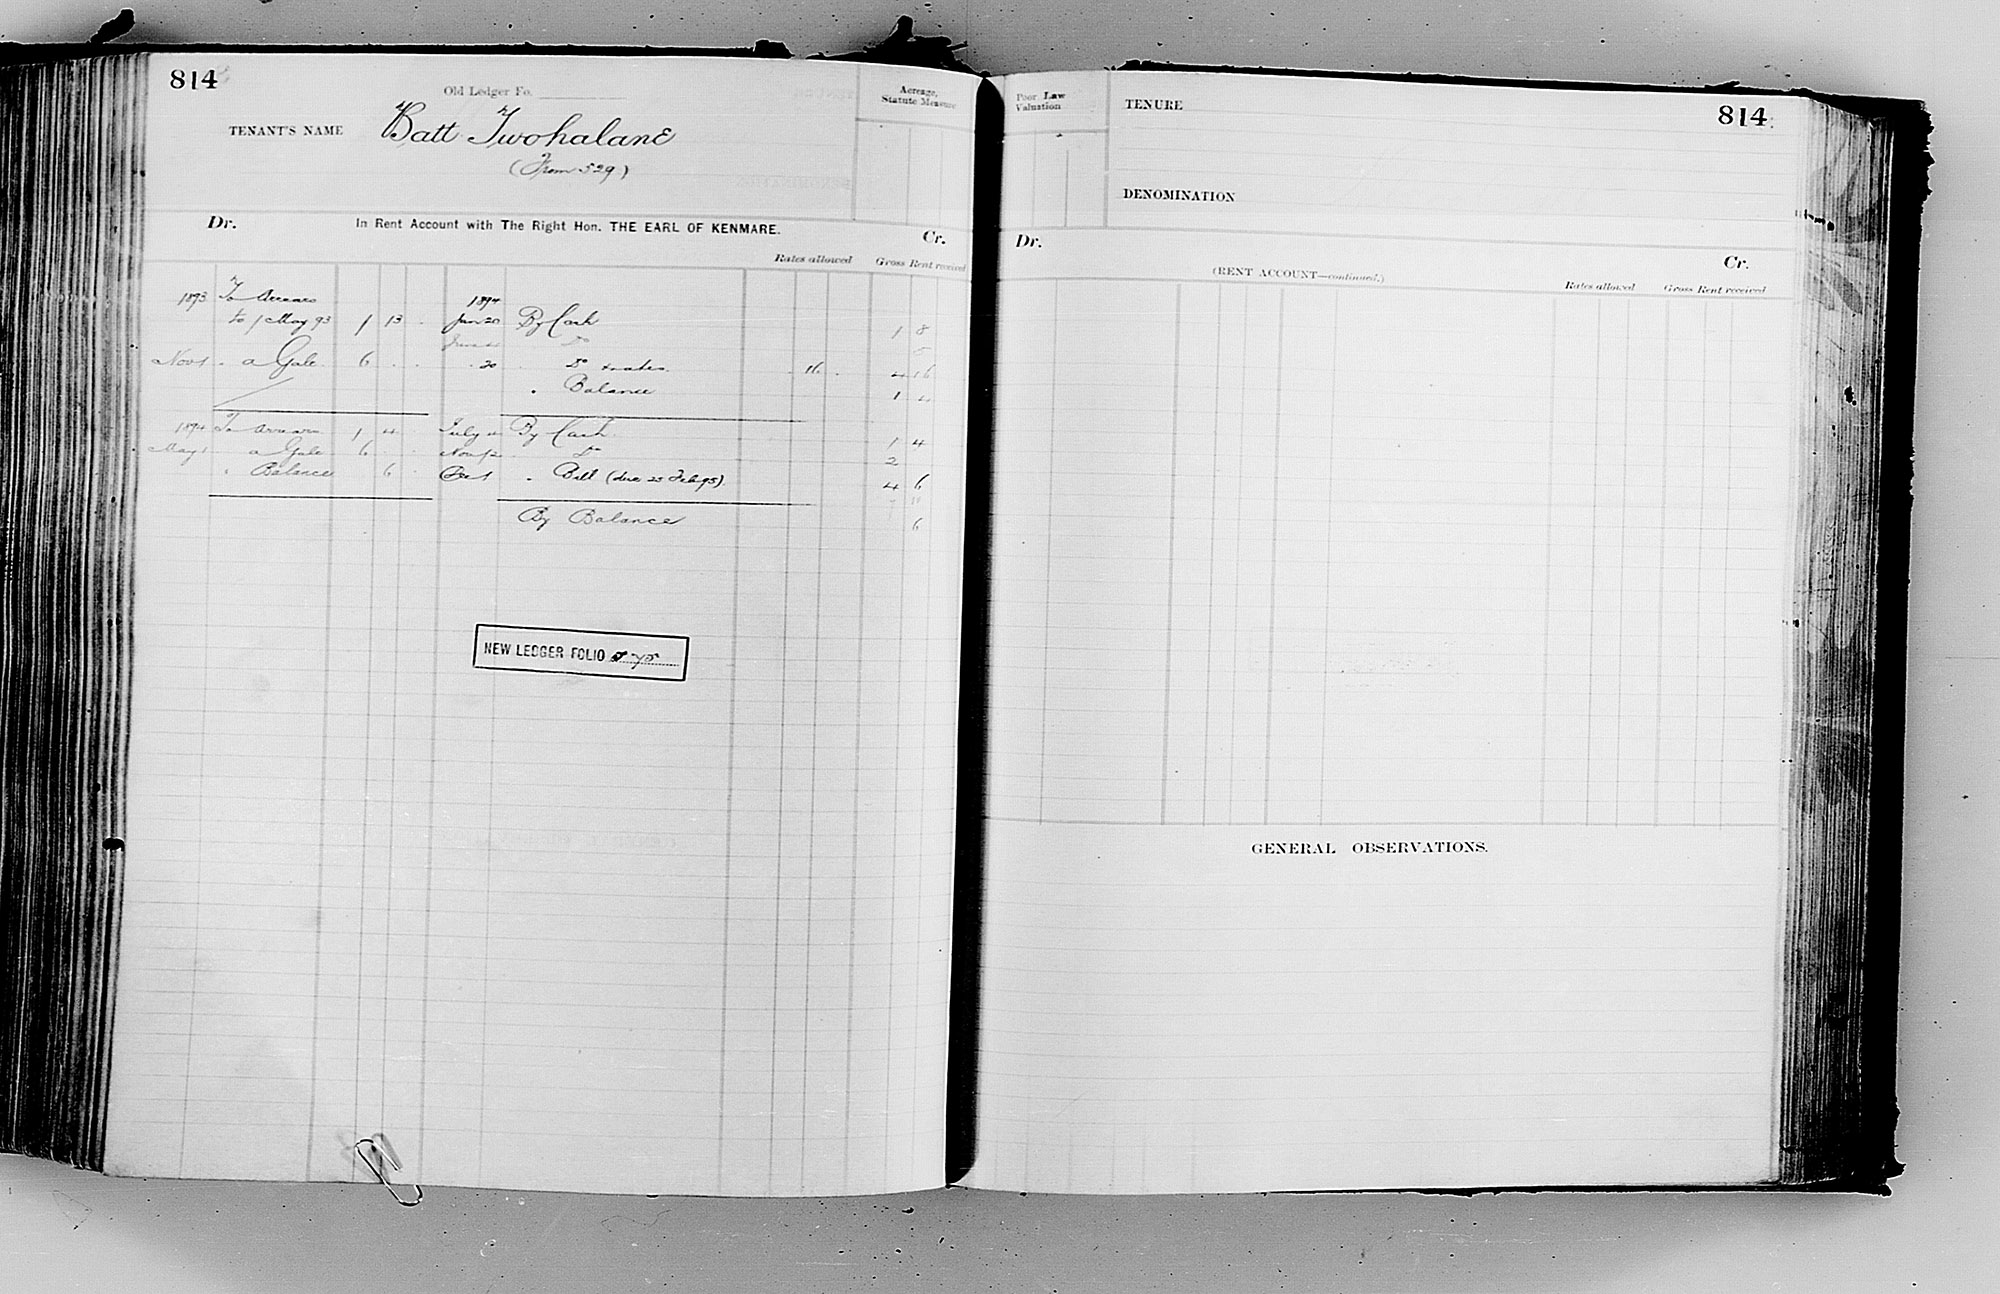 814
Old Ledger Fo.
TENANT'S NAME Batt Twohalane
(From 529)
Acreage, Statute Measure
Dr. In Rent Account with The Right Hon. THE EARL OF KENMARE. Cr.
Rates allowed Gross Rent received
1893 To Arrears 1894
to 1 May 93 1 13 . Jan 20 By Cash 1 8
June Do 5
Nov 1 . a Gale 6 . . . 20 Do & rates 16 . 4 16
. Balance 1 4
1894 To Arrears 1 4 July By Cash 1 4
May 1 a Gale 6 . . Nov 12 Do 2
. Balance 6 Dec 1 . Bill (due 23 Feb 95) 4 6
By Balance 6
NEW LEDGER FOLIO
Poor Law Valuation
TENURE
814
DENOMINATION
Dr. Cr.
(RENT ACCOUNT—continued.)
Rates allowed Gross Rent received
GENERAL OBSERVATIONS.